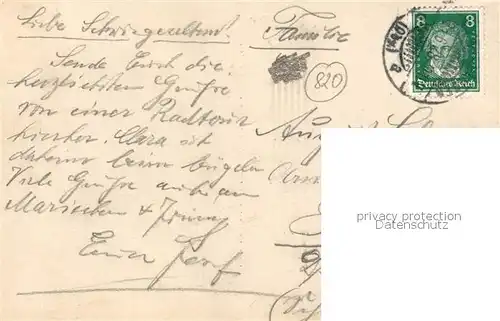 Liebe Schwiegereltern!
Sende Euch die
herzlichsten Grüße
von einer Radtour
hierher. Clara ist
daheim beim bügeln
Viele Grüße auch an
Mariechen &
Euer Josef
Familie
820
Aug
8 8
Deutsches Reich
privacy protection
Datenschutz